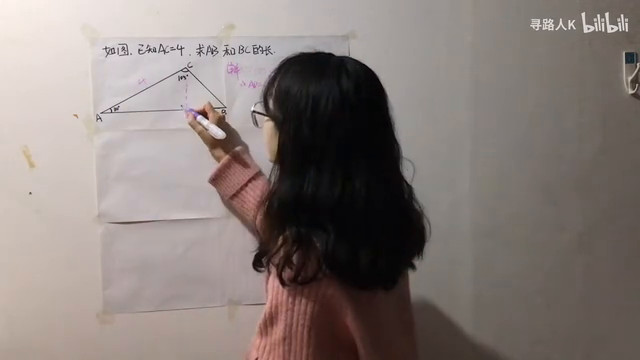 寻路人K bilibili
如图，已知AC=4，求AB和BC的长.
C
105°
A
30°
B
解